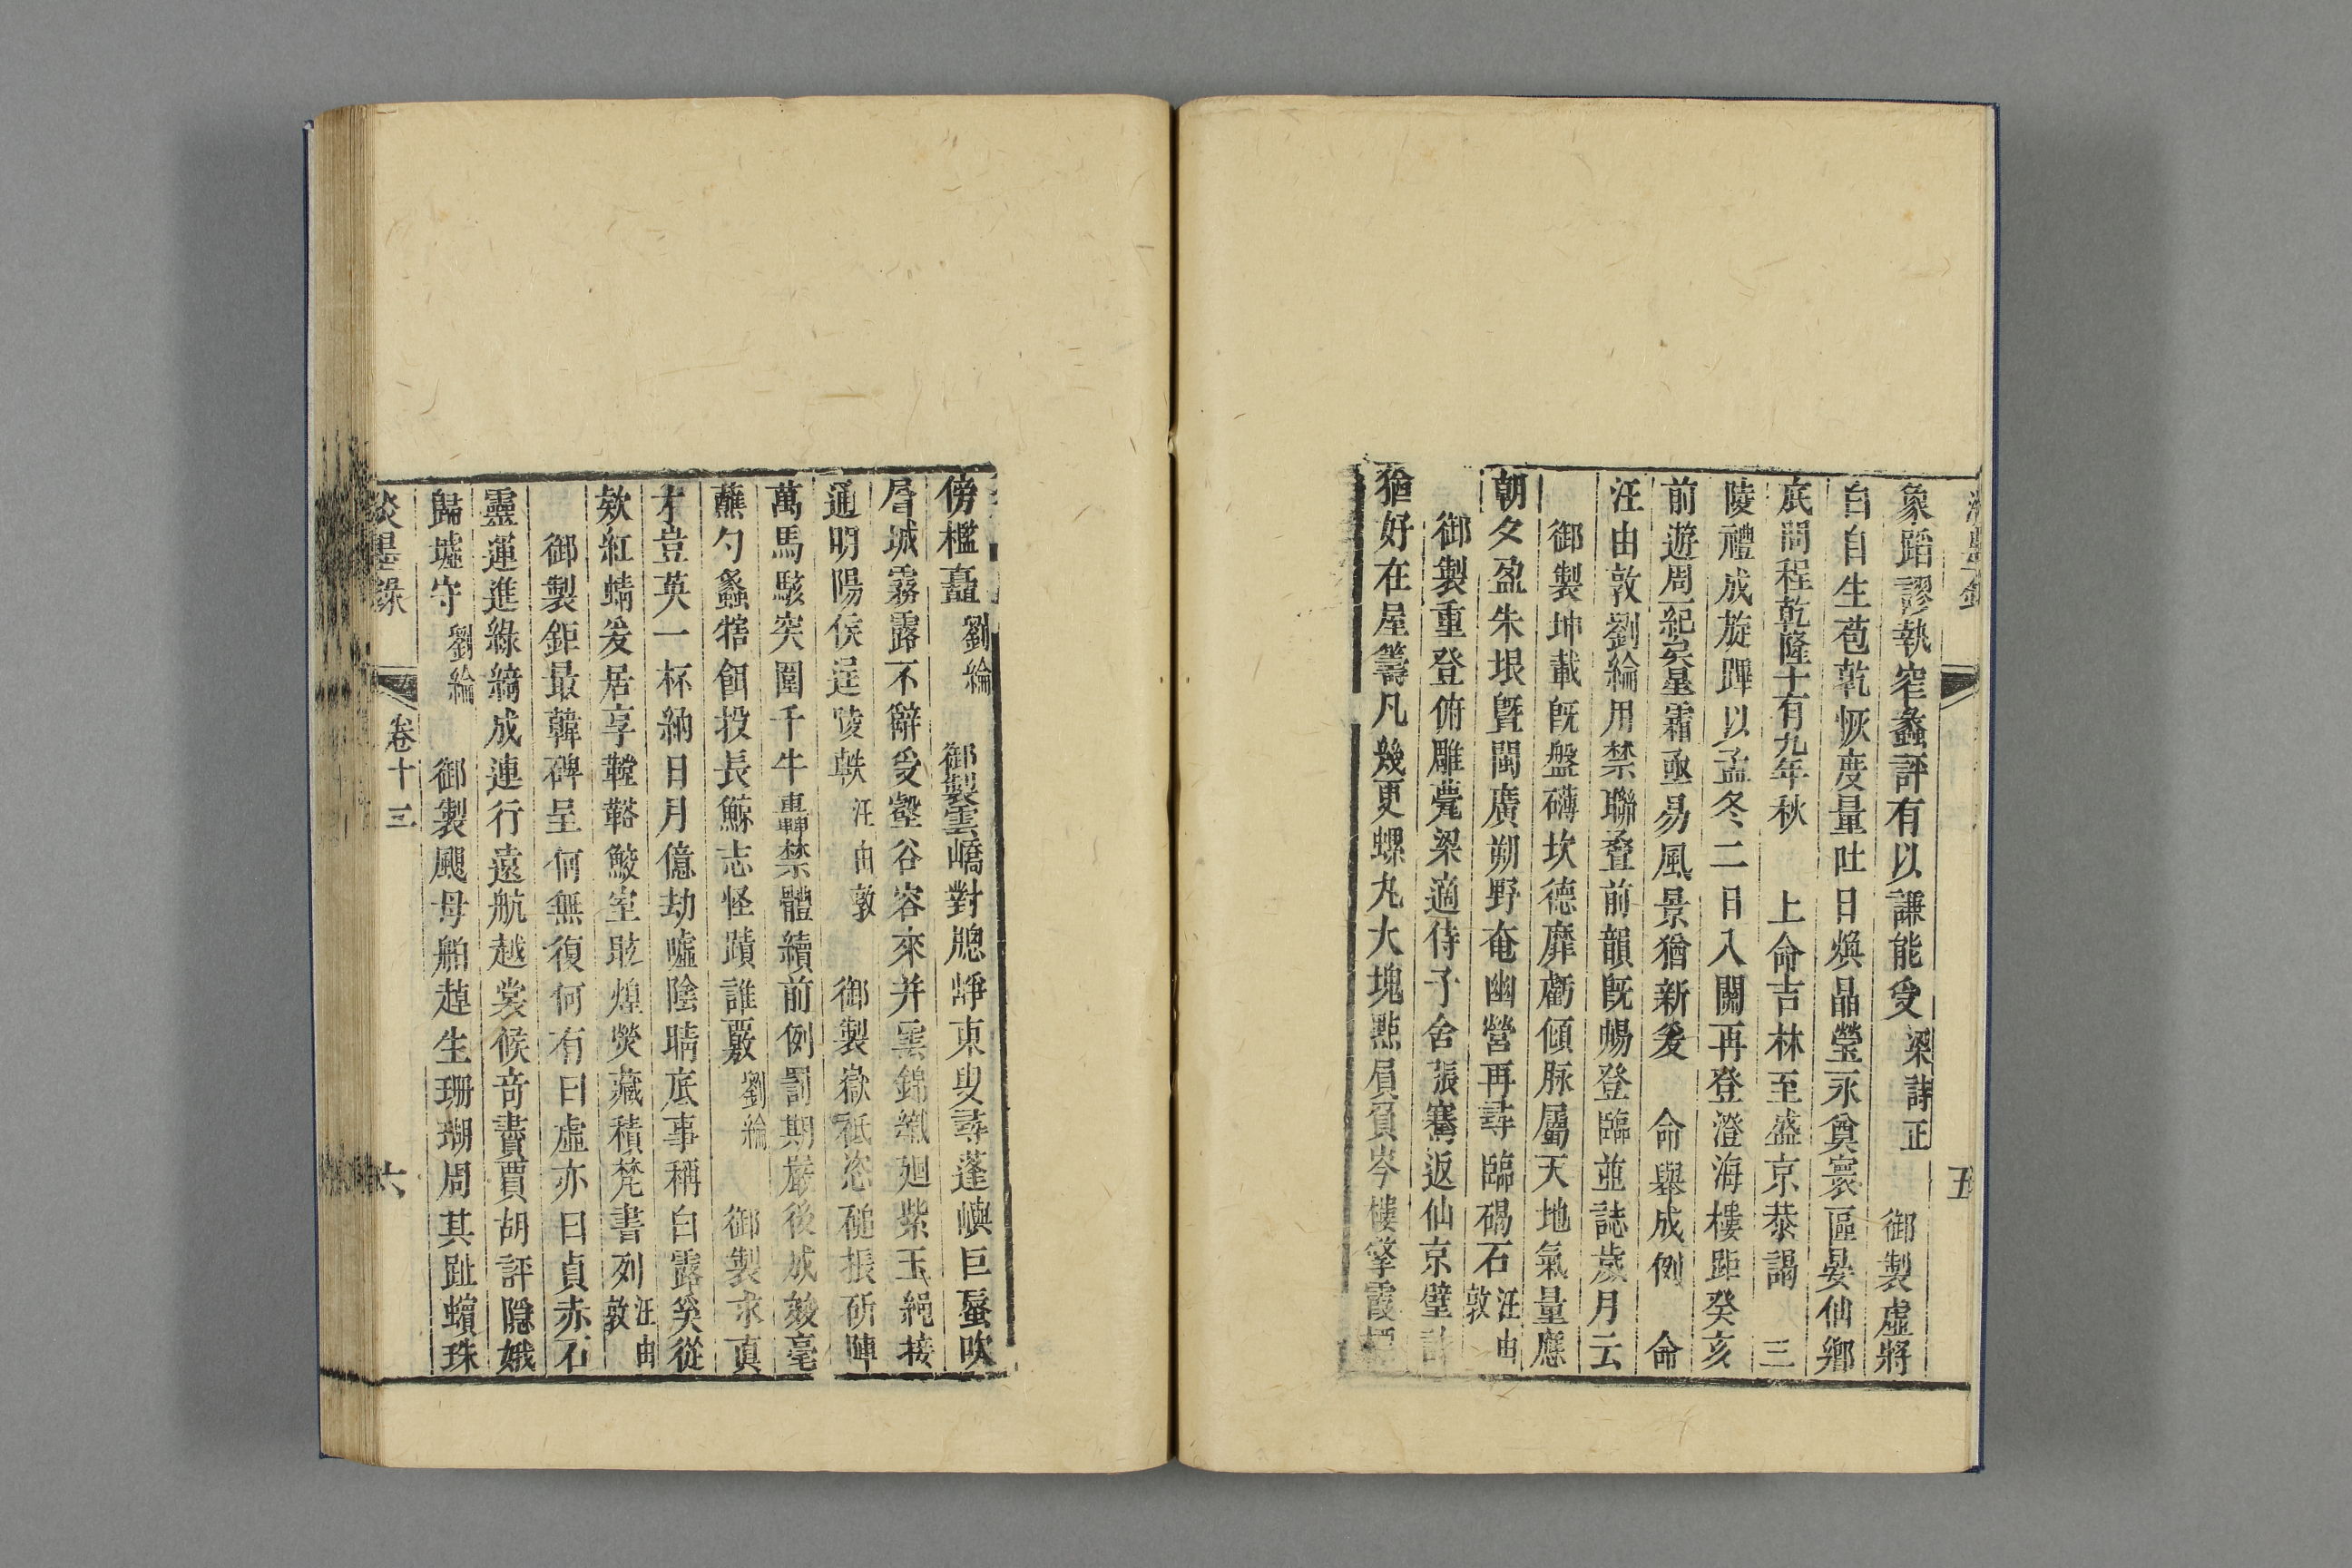 五
象蹈謬執窄蠡評有以謙能受梁詩正 御製虛將
白自生苞乾恢度量吐日煥晶瑩永奠寰區晏仙鄉
底問程乾隆十有九年秋 上命吉林至盛京恭謁 三
陵禮成旋蹕以孟冬二日入關再登澄海樓距癸亥
前遊周一紀矣星霜亟易風景猶新爰 命舉成例 命
汪由敦劉綸用禁聯疊前韻既暢登臨並誌歲月云
御製坤載旣盤礴坎德靡虧傾脉屬天地氣量應
朝夕盈朱垠曁閩廣朔野奄幽營再尋臨碣石汪由敦
御製重登俯雕甍梁適侍子舍張騫返仙京壁
猶好在屋籌凡幾更螺丸大塊點屓贔岑樓擎霞
傍檻矗劉綸 御製雲嶠對牕崢東叟尋蓬嶼巨蜃吹
層城霧露不辭受壑谷容來并雲錦纖廻紫玉繩接
通明陽侯逞陵軼汪由敦 御製嶽祗恣硾振斫陣
萬馬駭突圍千牛轟禁體續前例罰期嚴後成皴毫
蘸勺蠡犗餌投長鯨志怪蹟誰覈劉綸 御製求真
才豈英一杯納日月億劫噓陰晴底事稱白露奚從
欸紅蜻爰居享鞺鞳鮫室眩煌熒藏積梵書列汪由敦
御製鉅最韓碑呈何無復何有曰虛亦曰貞赤石
靈運進綠綺成連行遠航越裳候奇賮賈胡評隠娥
歸墟守劉綸 御製颶母舶趠生珊瑚周其趾蠙珠
談墨錄 卷十三 六